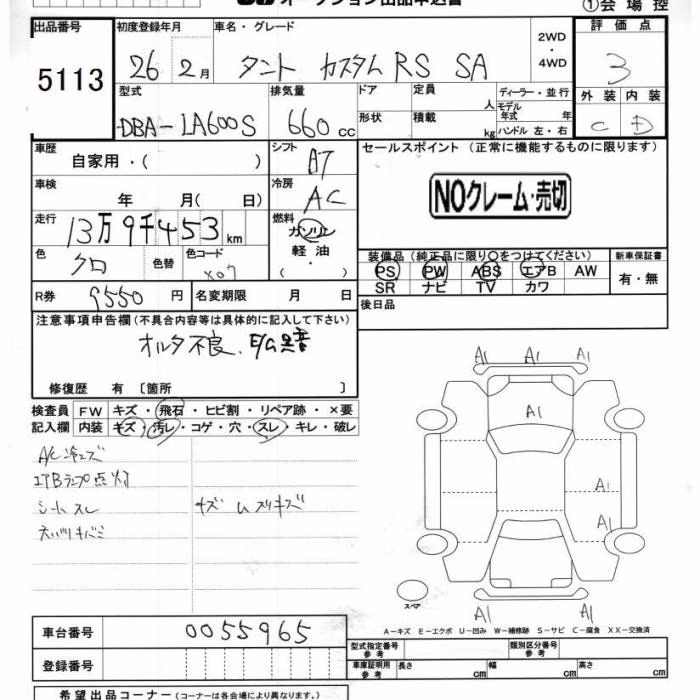 オークション出品申込書 ①会場控
出品番号 5113
初度登録年月 26年2月
車名・グレード タント カスタム RS SA
2WD・4WD
評価点 3
型式 DBA-LA600S
排気量 660cc
ドア 形状
定員 人 積載 kg
ディーラー・並行
モデル年式 年
ハンドル 左・右
外装 C 内装 D
車歴 自家用・( )
シフト AT
セールスポイント (正常に機能するものに限ります)
NOクレーム・売切
車検 年 月( 日)
冷房 AC
走行 13万9千453km
燃料 ガソリン 軽油 ・( )
色 クロ 色替 色コード X07
装備品(純正品に限り○をつけてください) 新車保証書
PS PW ABS エアB AW 有・無
SR ナビ TV カワ
R券 9550円 名変期限 月 日
後日品
注意事項申告欄(不具合内容等は具体的に記入して下さい)
オルタ不良、E/G異音
修復歴 有〔箇所 〕
検査員 FW キズ・飛石・ヒビ割・リペア跡・×要
記入欄 内装 キズ・汚レ・コゲ・穴・スレ・キレ・破レ
A/C冷エズ
エアBランプ点灯
シートスレ
キズ ムスリキズ
A1 A1 A1
A1
A1
A1
スペア
A1 A1
A-キズ E-エクボ U-凹み W-補修跡 S-サビ C-腐食 XX-交換済
車台番号 0055965
型式指定番号 参考 類別区分番号 参考
登録番号
車庫証明用 参考 長さ cm 幅 cm 高さ cm
希望出品コーナー(コーナーは各会場により異なります。)